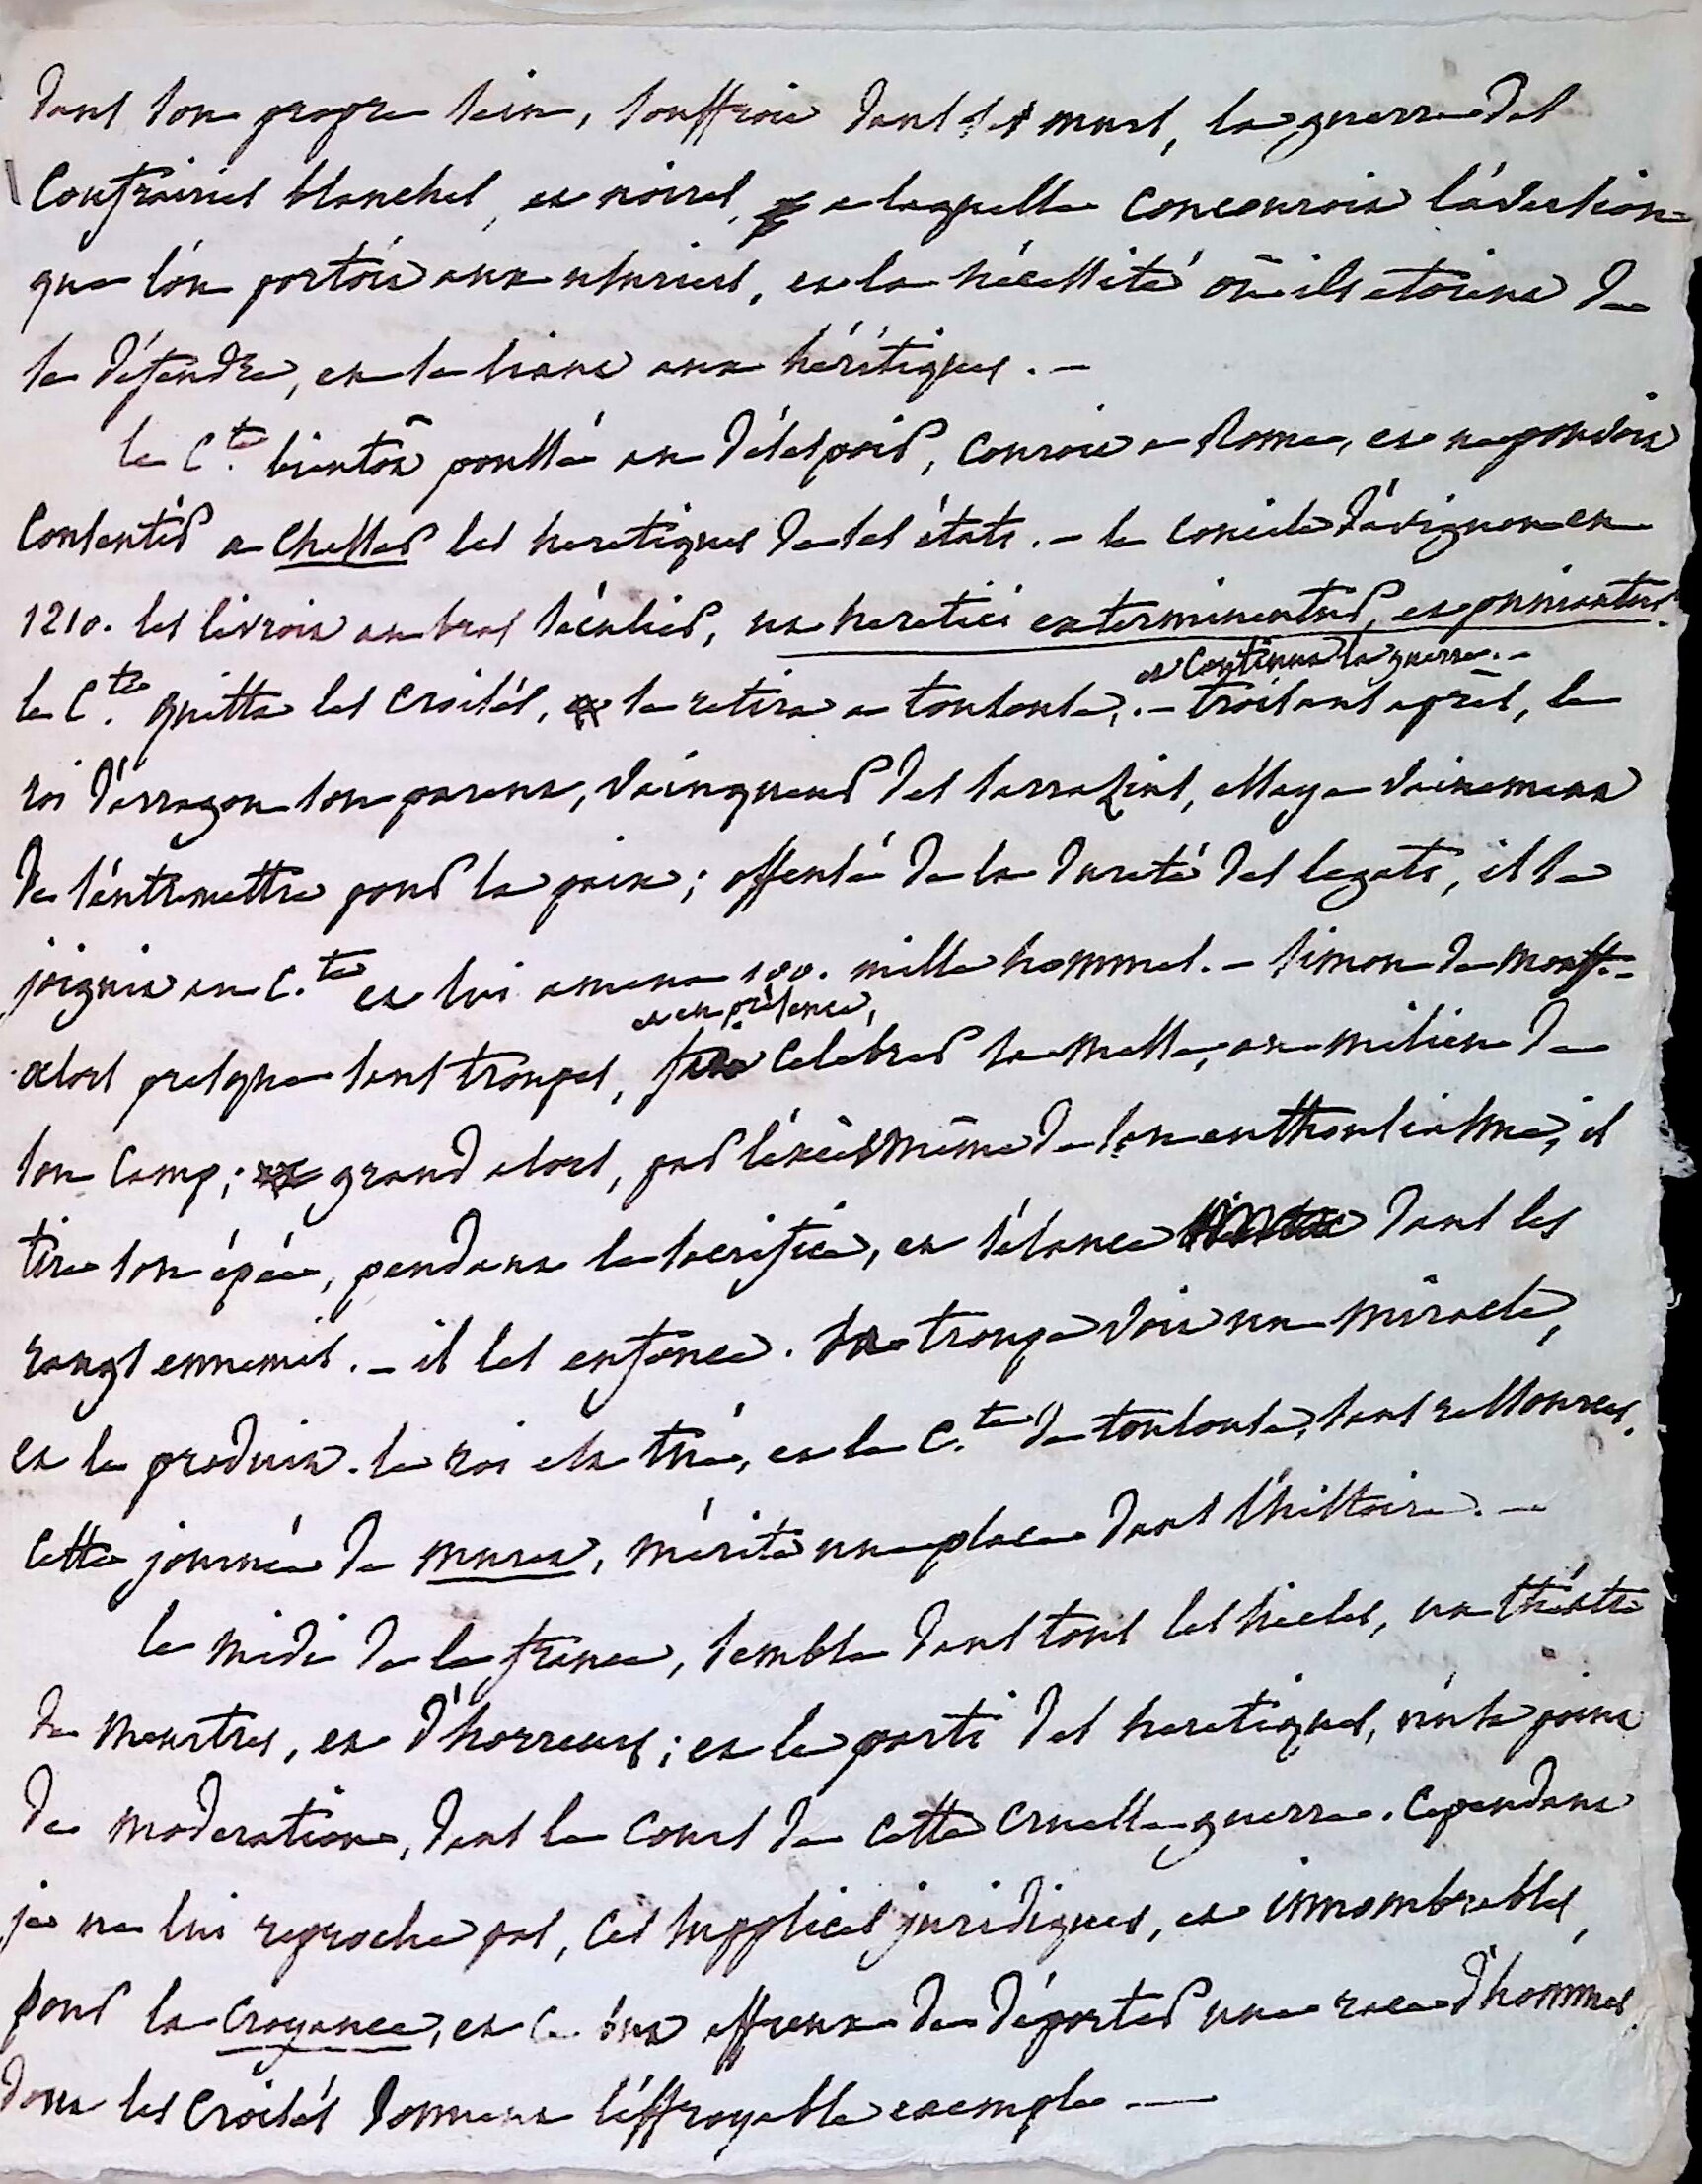 dans son propre sein, souffroit dans ses murs, la guerre des
Confrairies blanches, et noires, a laquelle concouroit l'aversion
que l'on portoit aux usuriers, et la nécessité où ils etoient de
se défendre, en se liant aux hérétiques. –
le C.te bientôt poussé au désespoir, couroit a Rome, et ne pouvoit
consentir a chasser les heretiques de ses états. – le concile d'avignon en
1210. les livroit au bras séculier, ut heretici exterminentur, et puniantur.
le C.te quitta les croisés, se retira a toulouse, et continua la guerre. – trois ans après, le
roi d'arragon son parent, vainqueur des sarrazins, essaya vainement
de s'entremettre pour la paix; offensé de la dureté des legats, il se
joignit au C.te et lui amena 100. mille hommes. – Simon de Montf.
alors presque sans troupes, et en présence, fait célébrer la messe, au milieu de
son camp; grand alors, par l'excès même de son enthousiasme, il
tire son épée, pendant le sacrifice, et s'élance dans les
rangs ennemis. – il les enfonce. sa troupe voit un miracle,
et le produit. le roi est tué, et le C.te de toulouse, sans ressources.
Cette journée de muret, mérite une place dans l'histoire. –
le midi de la france, semble dans tous les siecles, un théatre
de meurtres, et d'horreurs; et le parti des heretiques, n'usa point
de moderation, dans le cours de cette cruelle guerre. Cependant
je ne lui reproche pas, ces supplices juridiques, et innombrables,
pour la croyance, et ce but affreux de déporter une race d'hommes,
dont les croisés donnent l'effroyable exemple —